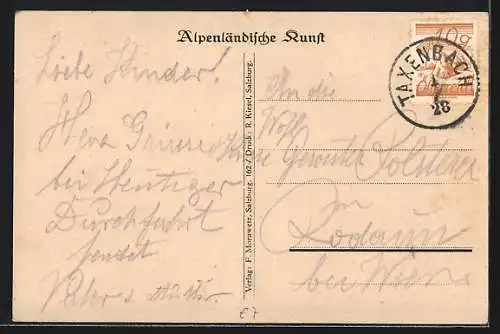 Alpenländische Kunst
Liebe Kinder!
Herz. Grüsse
bei Heutiger
Durchfahrt
sendet
Vater u. Mutter
Verlag: F. Morawetz, Salzburg. 162-/ Druck: R. Kiesel, Salzburg.
10g
TAXENBACH
28
An die
Wohl
Geronter Polsterer
In
Rodaun
bei Wien
E7